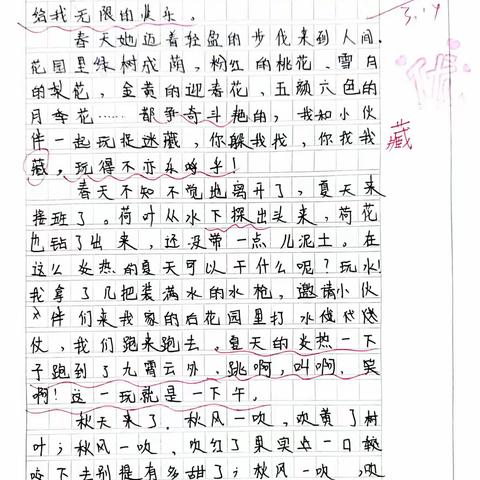 给我无限的快乐。
3.14
春天她迈着轻盈的步伐来到人间，
花园里绿树成荫，粉红的桃花、雪白
的梨花，金黄的迎春花、五颜六色的
月季花……都争奇斗艳的，我和小伙
伴一起玩捉迷藏，你躲我找，你找我
藏，玩得不亦乐乎！
优
藏
春天不知不觉地离开了，夏天来
接班了。荷叶从水下探出头来，荷花
也钻了出来，还没带一点儿泥土。在
这么炎热的夏天可以干什么呢？玩水！
我拿了几把装满水的水枪，邀请小伙
伴们来我家的后花园里打水仗
仗，我们跑来跑去，夏天的炎热一下
子跑到了九霄云外，跳啊，叫啊，笑
啊！这一玩就是一下午。
秋天来了，秋风一吹，吹黄了树
叶；秋风一吹，吹红了果实点一口
下去别提有多甜了；秋风一吹，吹